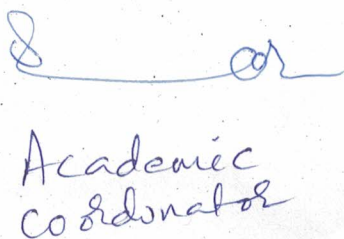 Academic
Coordonator